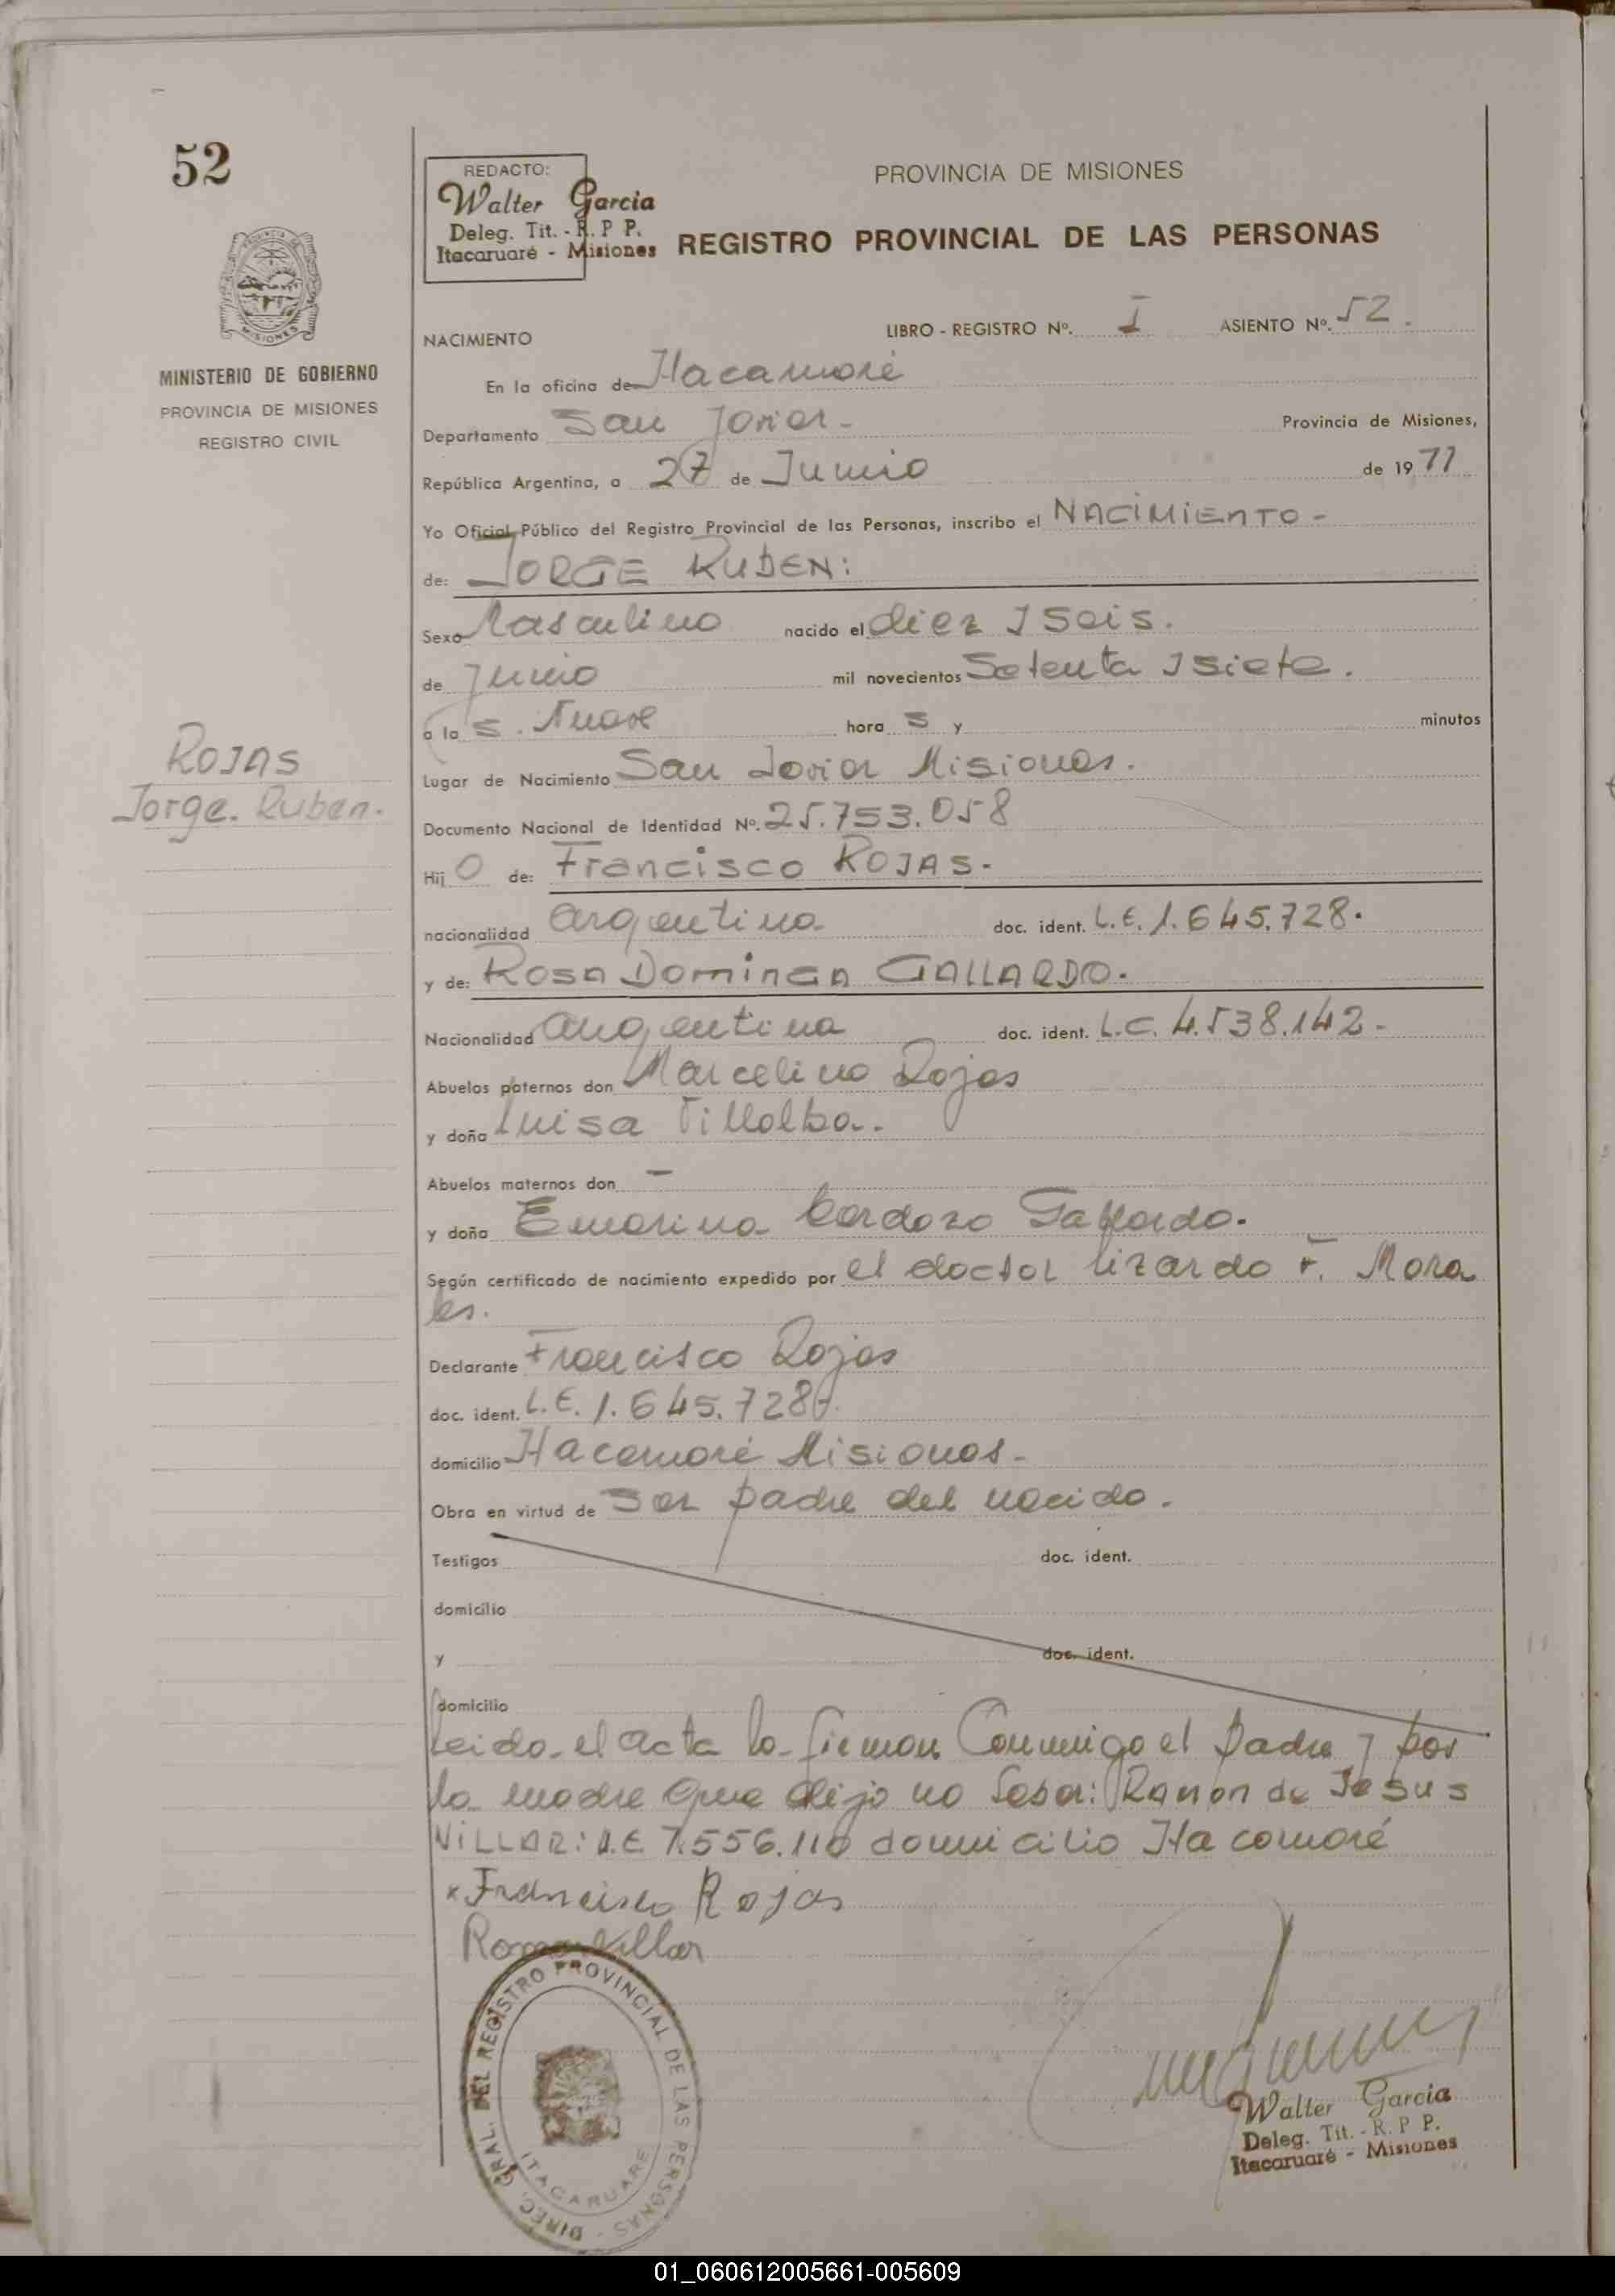 52
REDACTO:
Walter Garcia
Deleg. Tit. - R. P P.
Itacaruaré - Misiones
PROVINCIA DE MISIONES
REGISTRO PROVINCIAL DE LAS PERSONAS
MINISTERIO DE GOBIERNO
PROVINCIA DE MISIONES
REGISTRO CIVIL
NACIMIENTO LIBRO - REGISTRO Nº. I ASIENTO Nº. 52.
En la oficina de Itacaruaré
Departamento San Javier - Provincia de Misiones,
República Argentina, a 27 de Junio de 1977
Yo Oficial Público del Registro Provincial de las Personas, inscribo el NACIMIENTO -
de: JORGE RUBEN:
Sexo Masculino nacido el diez y Seis.
de Junio mil novecientos Setenta y Siete.
a la s. Nueve hora s y minutos
ROJAS
Jorge. Ruben.
Lugar de Nacimiento San Javier Misiones.
Documento Nacional de Identidad Nº. 25.753.058
Hij o de: Francisco ROJAS.
nacionalidad argentina doc. ident. L.E. 1.645.728.
y de: Rosa Dominga GALLARDO.
Nacionalidad argentina doc. ident. L.C. 4.538.142-
Abuelos paternos don Marcelino Rojas
y doña Luisa Villalba.
Abuelos maternos don -
y doña Emorina Cardozo Gallardo.
Según certificado de nacimiento expedido por el doctor Lizardo F. Mora
les.
Declarante Francisco Rojas
doc. ident. L.E. 1.645.728
domicilio Itacaruaré Misiones-
Obra en virtud de ser padre del nacido.
Testigos doc. ident.
domicilio
y doc. ident.
domicilio
Leido el acta la firman Conmigo el padre y por
la madre que dijo no Saber: Ramon de Jesus
VILLAR: D.E 7.556.110 domicilio Itacaruaré
x Francisco Rojas
Ramon Villar
DIREC. GRAL. DEL REGISTRO PROVINCIAL DE LAS PERSONAS -
ITACARUARE
Walter Garcia
Deleg. Tit. - R. P P.
Itacaruaré - Misiones
01_060612005661-005609